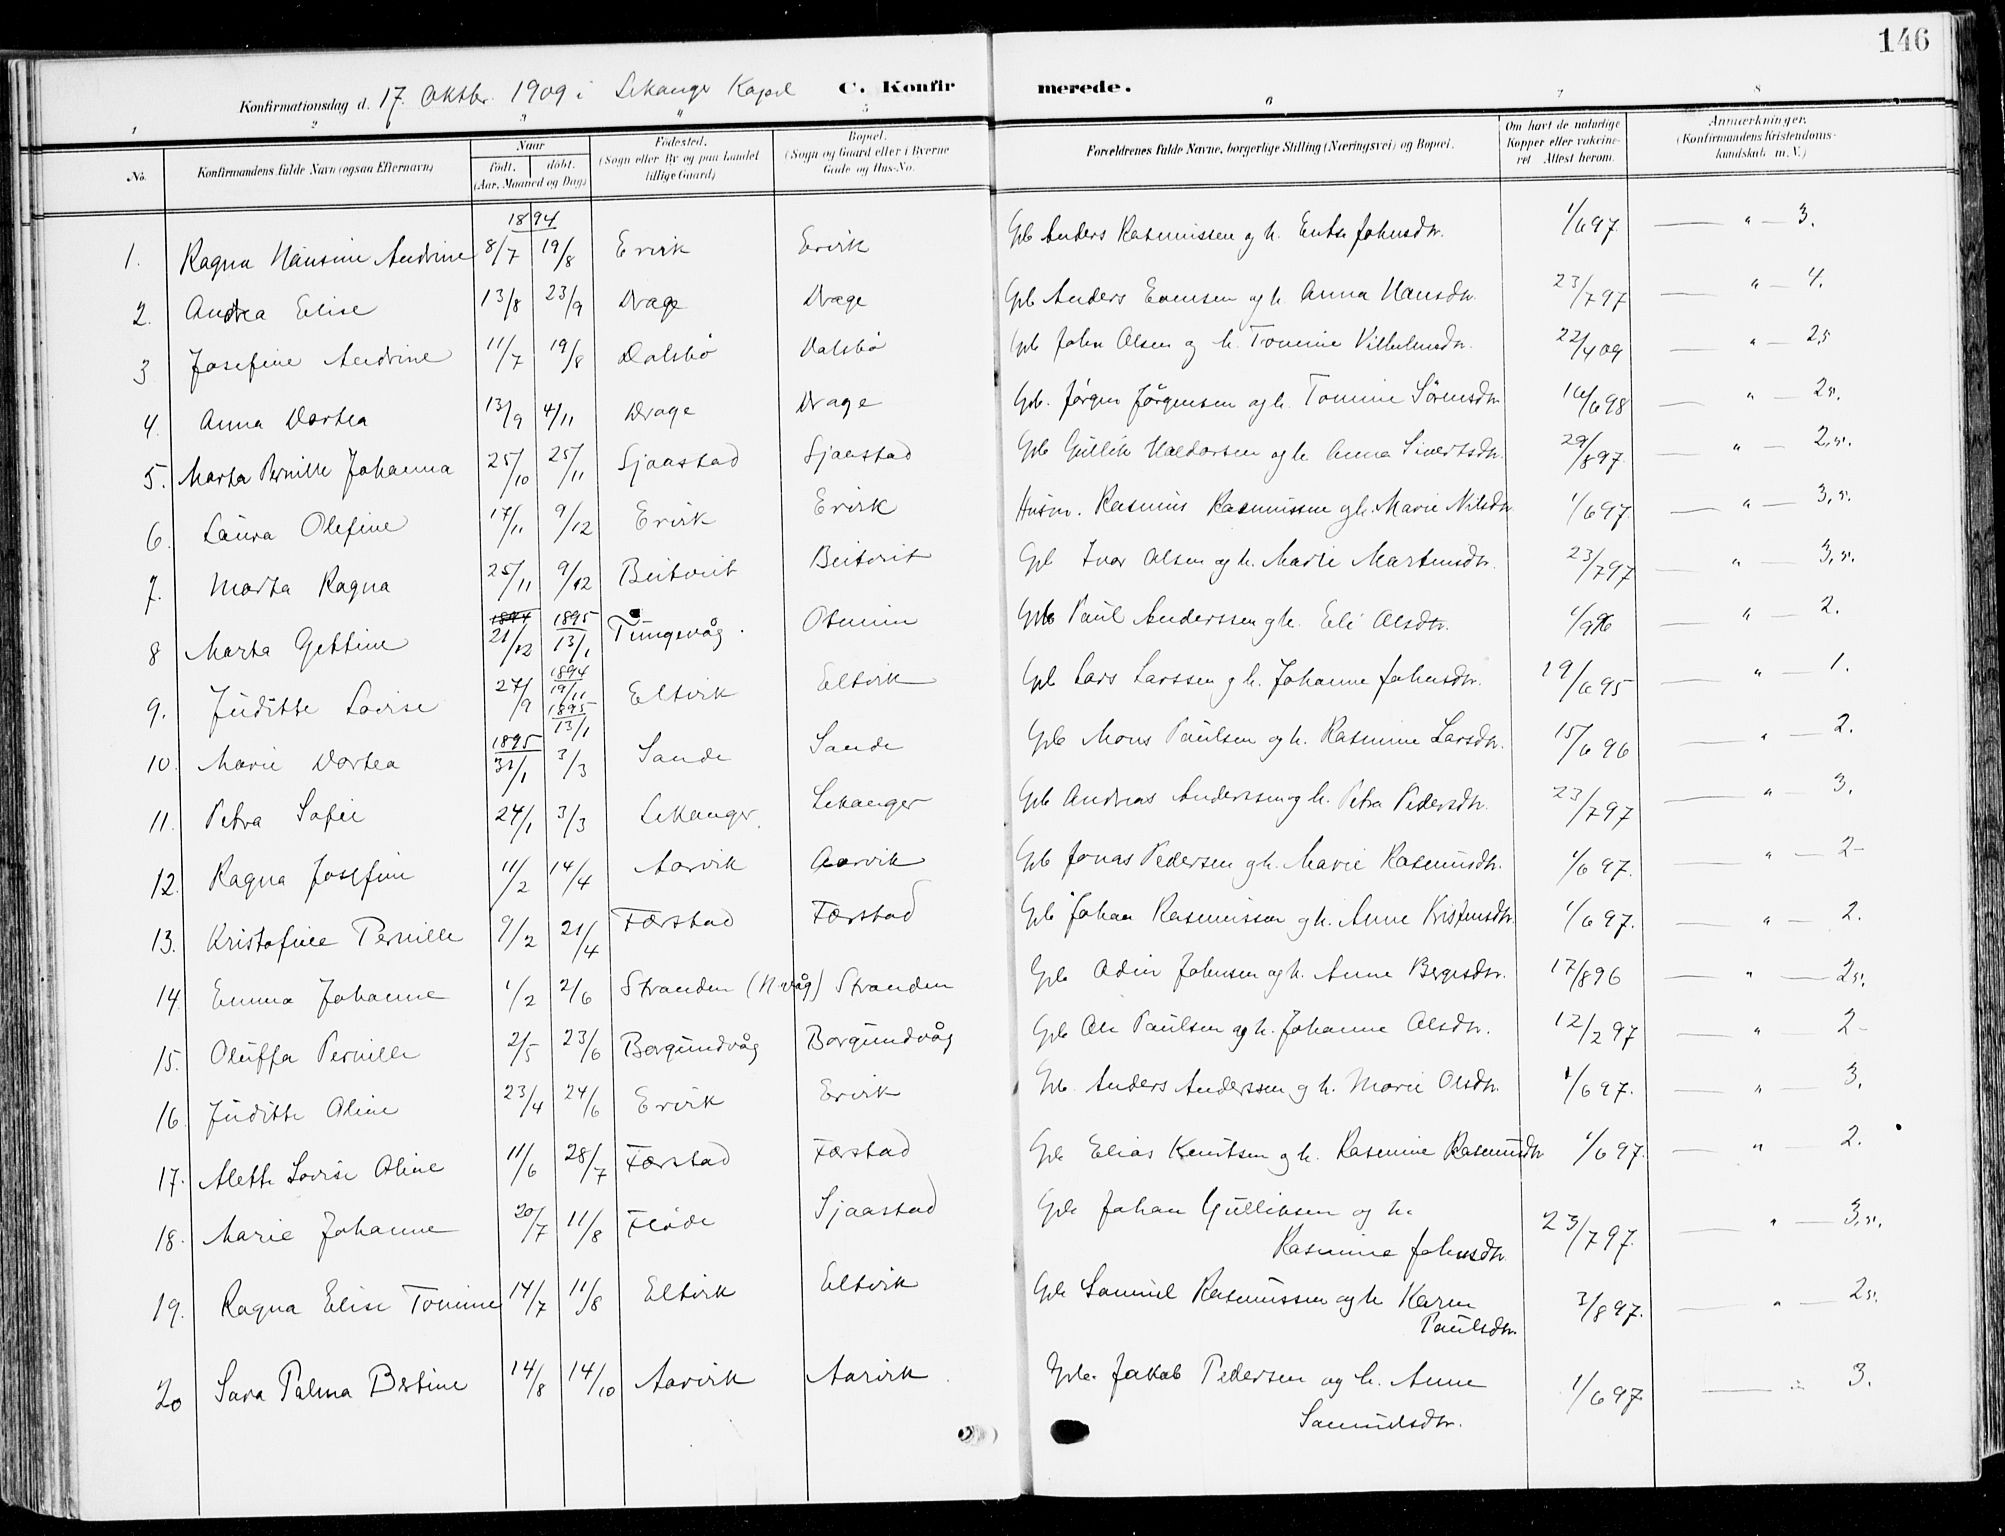 146
Konfirmationsdag d. 17. Oktbr. 1909 i Lekanger Kapel C. Konfirmerede.
1 2 3 4 5 6 7 8
No. Konfirmandens fulde Navn (ogsaa Efternavn) Naar født. døbt. (Aar, Maaned og Dag) Fødested. (Sogn eller By og paa Landet tillige Gaard) Bopæl. (Sogn og Gaard eller i Byerne Gade og Hus-No. Forældrenes fulde Navne, borgerlige Stilling (Næringsvei) og Bopæl. Om havt de naturlige Kopper eller vakcineret Attest herom. Anmærkninger. (Konfirmandens Kristendomskundskab m. V.)
1894
1. Ragna Hansine Andrine 8/7 19/8 Ervik Ervik Gb Anders Rasmussen og h. Johnsdtr. 1/6 97. — " — 3.
2. Andrea Elise 13/8 23/9 Drage Drage Gb Anders Evensen og h. Anna Hansdtr. 23/7 97 — " — 4.
3 Josefine Andrine 11/7 19/8 Dalsbø Dalsbø Gb John Olsen og h. Tomine Vilhelmsdtr. 22/4 09 — " — 2,5
4. Anna Dortea 13/9 4/11 Drage Drage Gb. Jørgen Jørgensen og h. Tomine Sørensdtr. 16/6 98 — " — 2,5.
5. Marta Pernille Johanna 25/10 25/11 Sjaastad Sjaastad Gb Gullik Haldorsen og h. Anna Sivertsdtr. 29/8 97. — " — 2,5.
6. Laura Olefine 17/11 9/12 Ervik Ervik Husm. Rasmus Rasmussen og h. Marie Nilsdtr 1/6 97. — " — 3,5.
7. Marta Ragna 25/11 9/12 Beitveit Beitveit Gb Ivar Olsen og h. Marte Martinsdtr. 23/7 97 — " — 3,5.
1894 1895
8 Marta Gettine 21/12 13/1 Tungevåg. Gb Paul Anderssen og h. Eli Olsdtr. 1/9 96 — " — 2.
1894
9. Juditte Lovise 27/9 19/11 Eltvik Eltvik Gb Lars Larssen og h. Johanne Johnsdtr. 19/6 95 — " — 1.
1895
13/1
1895
10. Marie Dortea 31/1 3/3 Sande Sande Gb Mons Paulsen og h. Rasmine Larsdtr. 15/6 96 — " — 2.
11. Petra Sofie 24/1 3/3 Lekanger. Lekanger Gb Andreas Anderssen og h. Petra Pedersdtr. 23/7 97 — " — 3.
12. Ragna Josefine 11/2 14/4 Aarvik Aarvik Gb Jonas Pedersen og h. Marie Rasmusdtr. 1/6 97. — " — 2-
13. Kristofine Pernille 9/2 21/4 Færstad Færstad Gb Johan Rasmussen og h. Anne Kristensdtr. 1/6 97. — " — 2.
14. Emma Johanne 1/2 2/6 Stranden (N. våg) Stranden Gb Odin Johnsen og h. Anne Bergesdtr. 17/8 96 — " — 2,5.
15. Oluffa Pernille 2/5 23/6 Borgundvåg Borgundvåg Gb Ole Paulsen og h. Johanne Olsdtr. 12/2 97 — " — 2-
16. Juditte Oline 23/4 24/6 Ervik Ervik Gb. Anders Anderssen og h. Marie Olsdtr. 1/6 97. — " — 3.
17. Alette Lovise Oline 11/6 28/7 Færstad Færstad Gb Elias Knutsen og h. Rasmine Rasmusdtr 1/6 97. — " — 2.
18. Marie Johanne 20/7 11/8 Fløde Sjaastad Gb Johan Gulliksen og h.
Rasmine Johnsdtr. 23/7 97. — " — 3,5.
19. Ragna Elise Tomine 14/7 11/8 Eltvik Eltvik Gb Samuel Rasmussen og h Karen
Paulsdtr. 3/8 97. — " — 2,5.
20 Sara Palma Bertine 14/8 14/10 Aarvik Aarvik Gb. Jakob Pedersen og h. Anne
Samuelsdtr. 1/6 97. — " — 3.